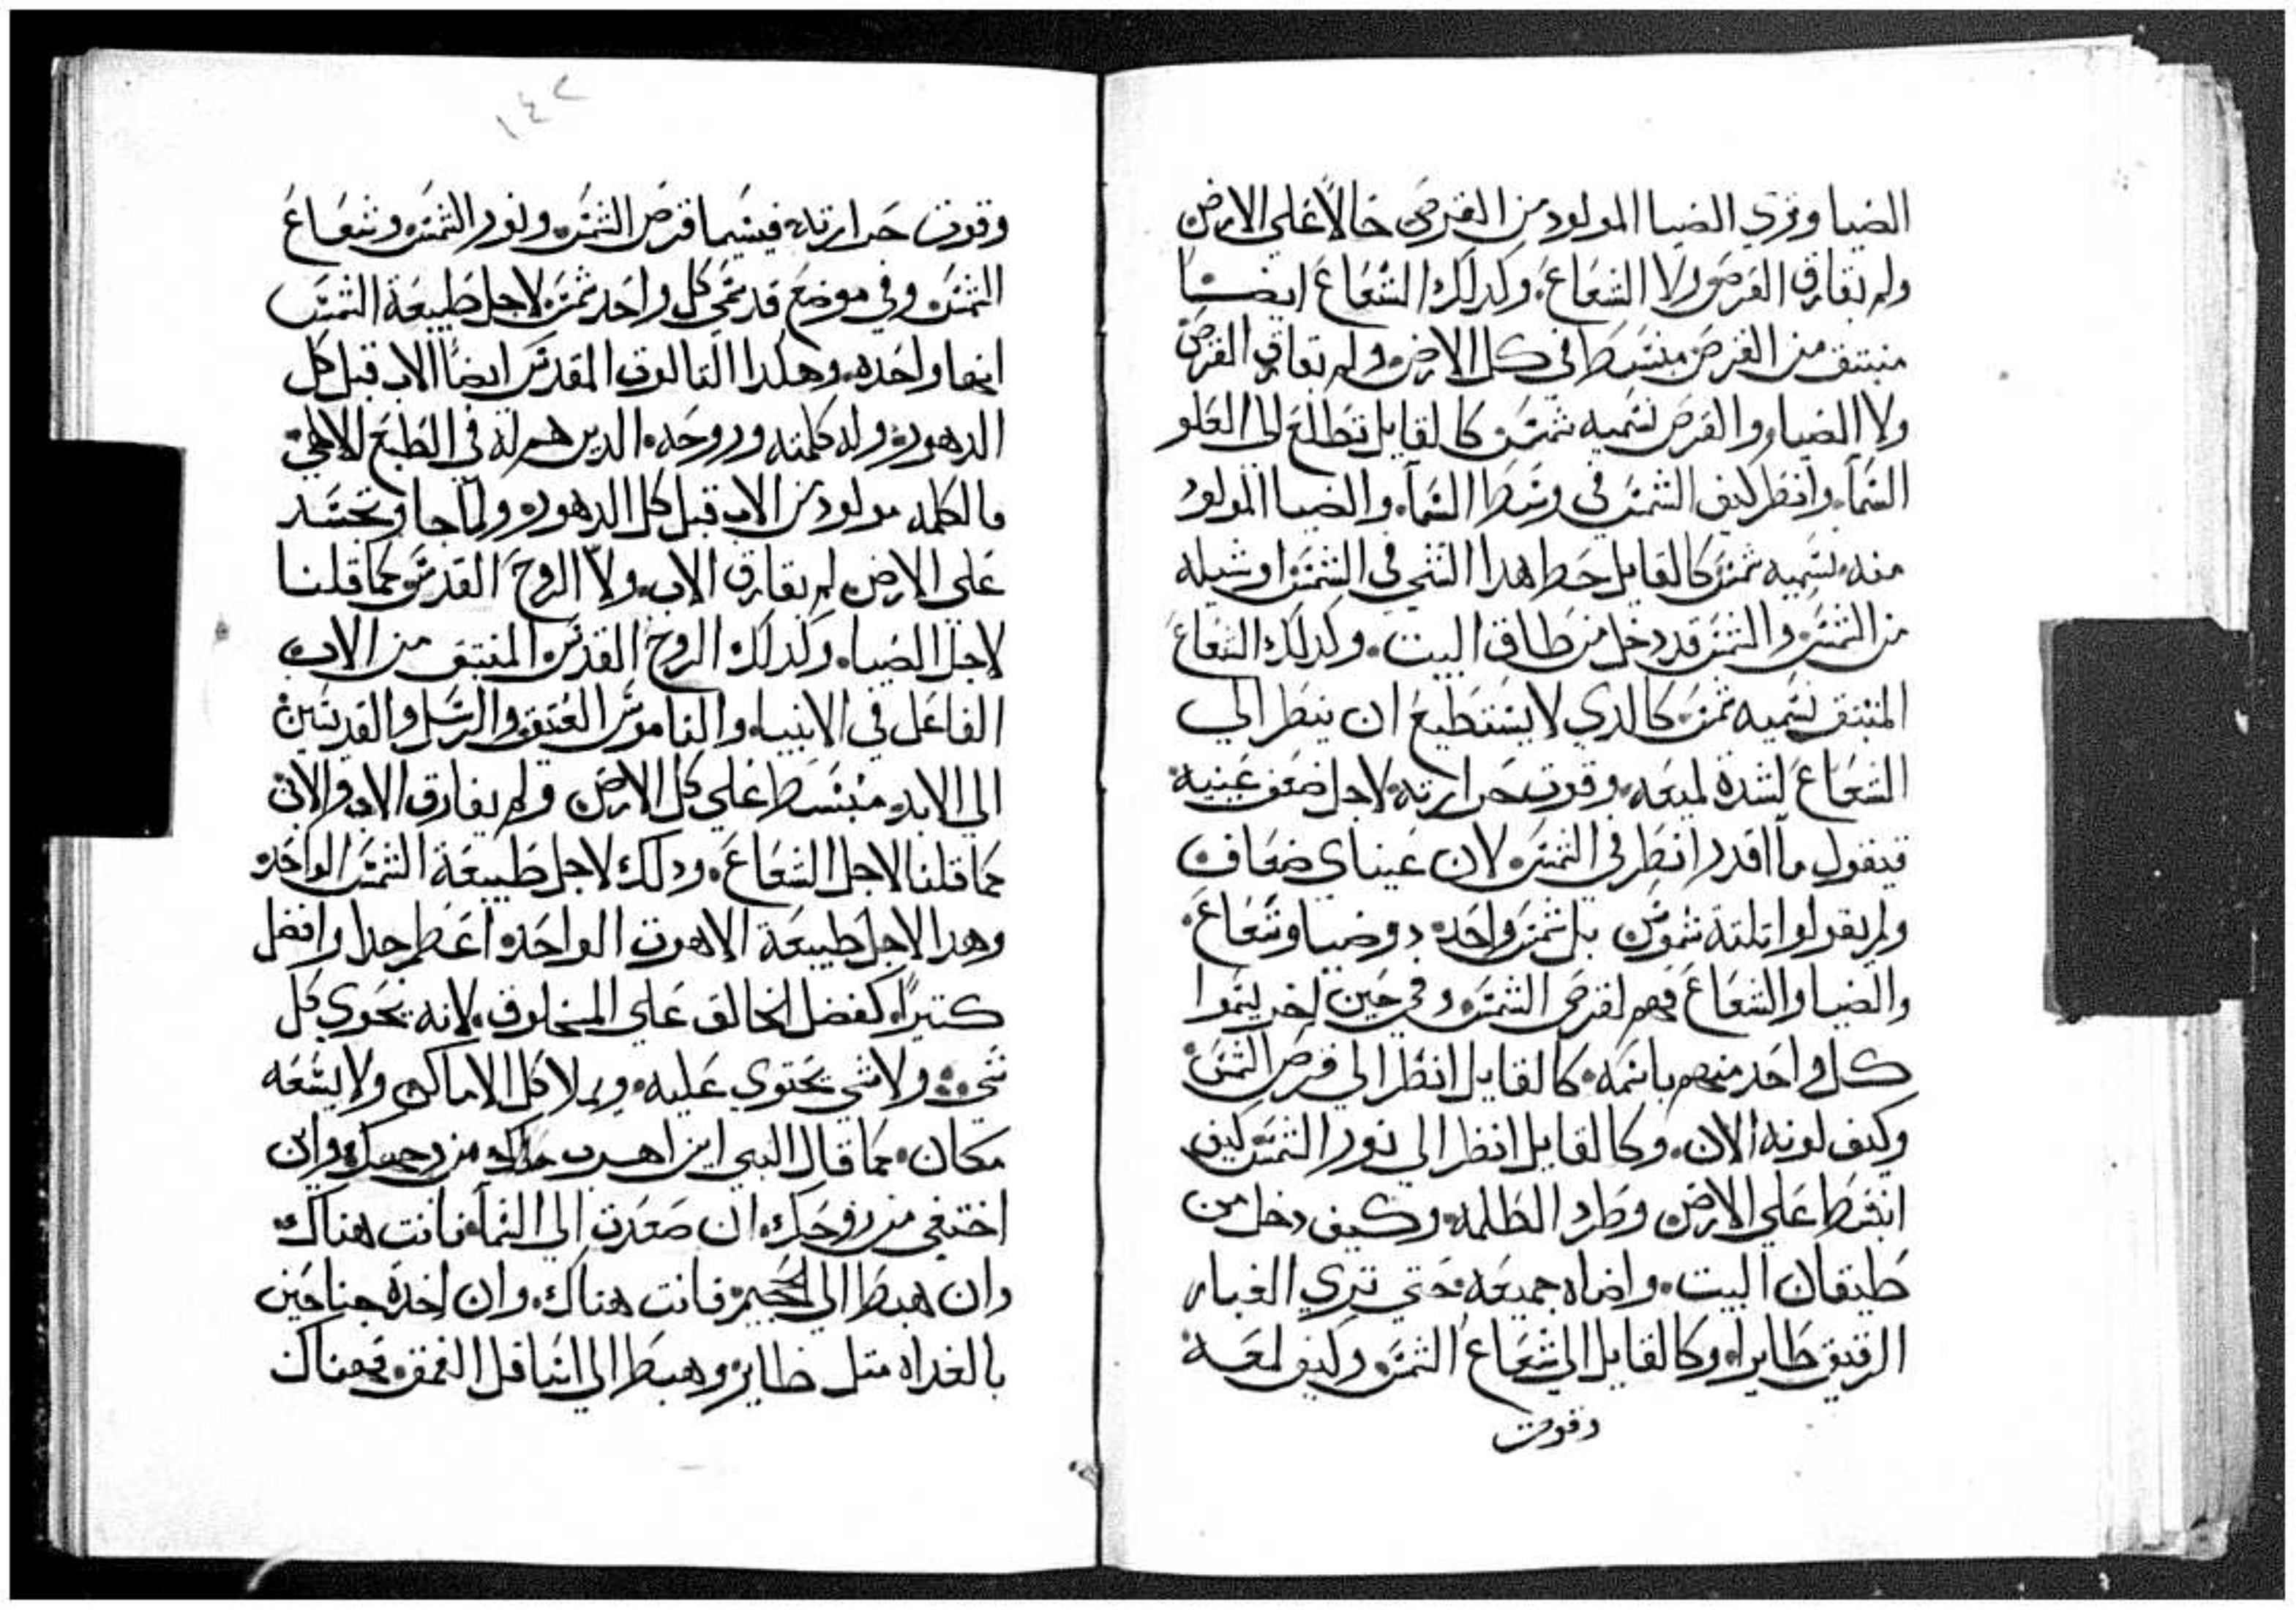 الضيا وتري الضيا المولود من القرص حالاً علي الارض
ولم يفارق القرص ولا الشعاع. وكدلك الشعاع ايضا
منبتق من القرص منبسط في كل الارض ولم يفارق القرص
ولا الضيا. والقرص نسميه شمس كالقايل تطلع الي العلو
السما. وانظر كيف الشمس في وسط السما. والضيا المولود
منه نسميه شمس كالقايل حط هدا الشي في الشمس او شيله
من الشمس والشمس قد دخل من طاق البيت. وكدلك الشعاع
المنبتق نسميه شمس. كالدي لا يستطيع ان ينظر الي
الشعاع لشدة لميعه. وقوت حرارته. لاجل ضعف عينيه
فيقول ما اقدر انظر في الشمس لان عيناى ضعاف
ولم يقولوا تلتة شموس بل شمس واحده دو ضيا وشعاع.
والضيا والشعاع فهم لقرص الشمس وفي حين اخر يسموا
كل واحد منهم باسمه. كالقايل انظر الي قرص الشمس
وكيف لونه الان. وكالقايل انظر الي نور الشمس كيف
انبسط علي الارض وطرد الظلمه. وكيف دخل من
طيقان البيت. واضاه جميعه حتي تري الغبار
الرقيق طايرا. وكالقايل الي شعاع الشمس وكيف لمعه
وقوت
١٤٧
وقوت حرارته فيسما قرص الشمس ونور الشمس وشعاع
الشمس وفي موضع قد سمي كل واحد شمس لاجل طبيعة الشمس
انها واحده. وهكدا التالوت المقدس ايضاً الاب قبل كل
الدهور وله كلمته وروحه. الدين هم له في الطبع الالاهي
فالكلمه مولود من الاب قبل كل الدهور ولما جا وتجسد
علي الارض لم يفارق الاب ولا الروح القدس كما قلنا
لاجل الضيا. وكدلك الروح القدس المنبتق من الاب
الفاعل في الانبيا والناموس العتيق والرسل والقديسين
الي الابد منبسط علي كل الارض ولم يفارق الاب والابن
كما قلنا لاجل الشعاع. ودلك لاجل طبيعة الشمس الواحده
وهدا لاجل طبيعة الاهوت الواحده اعظم جدا وافضل
كتيراً كفضل الخالق علي المخلوق. لانه يحوي كل
شي ولا شي يحتوي عليه. ويملا كل الاماكن ولا يسعه
مكان. كما قال النبي اين اهرب من وجهك واين
اختفي من روحك. ان صعدت الي السما فانت هناك
وان هبط الي الجحيم فانت هناك. وان اخدة جناحين
بالغداه متل طاير وهبط الي اسافل العمق. فهناك